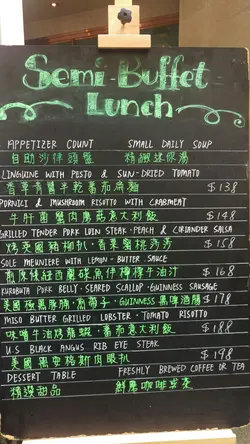 Semi-Buffet
Lunch
APPETIZER COUNT SMALL DAILY SOUP
自助沙律頭盤 精緻迷你湯
LINGUINE WITH PESTO & SUN-DRIED TOMATO
香草青醬半乾蕃茄扁麵 $138
PORNICI & MUSHROOM RISOTTO WITH CRABMEAT
牛肝菌蟹肉蘑菇意大利飯 $148
GRILLED TENDER PORK LOIN STEAK · PEACH & CORIANDER SALSA
烤英國豬柳扒 $158
SOLE MEUNIERE WITH LEMON-BUTTER SAUCE
檸檬牛油汁 $168
KUROBUTA PORK BELLY · SEARED SCALLOP · GUINNESS SAUSAGE
美國極黑豚腩 · 扇帶子 · GUINNESS 黑啤酒腸 $178
MISO BUTTER GRILLED LOBSTER · TOMATO RISOTTO
味噌牛油烤龍蝦 · 蕃茄意大利飯 $188
U.S BLACK ANGUS RIB EYE STEAK
美國黑安格斯肉眼扒 $198
DESSERT TABLE FRESHLY BREWED COFFEE OR TEA
精選甜品 鮮磨咖啡或茶